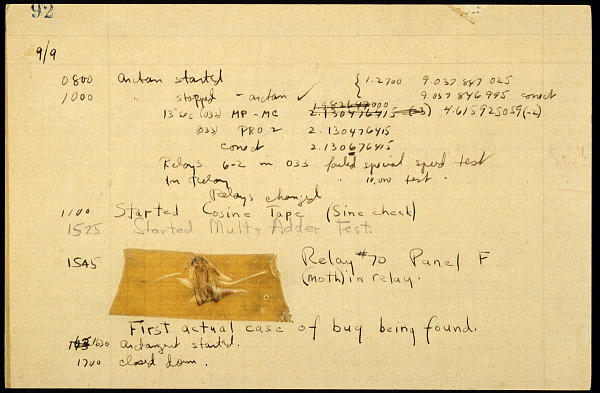 92
9/9
0800 arctan started { 1.2700 9.037 847 025
1000 " stopped - arctan ✓ 9.037 846 995 correct
13"uc (032) MP - MC 1.982647000 2.130476415 (-3) 4.615925059(-2)
(033) PRO 2 2.130476415
correct 2.130676415
Relays 6-2 in 033 failed special speed test
In Relay " 10,000 test .
Relays changed
1100 Started Cosine Tape (Sine check)
1525 Started Mult + Adder Test.
1545 Relay #70 Panel F
(moth) in relay.
First actual case of bug being found.
1630 arctangent started.
1700 closed down .